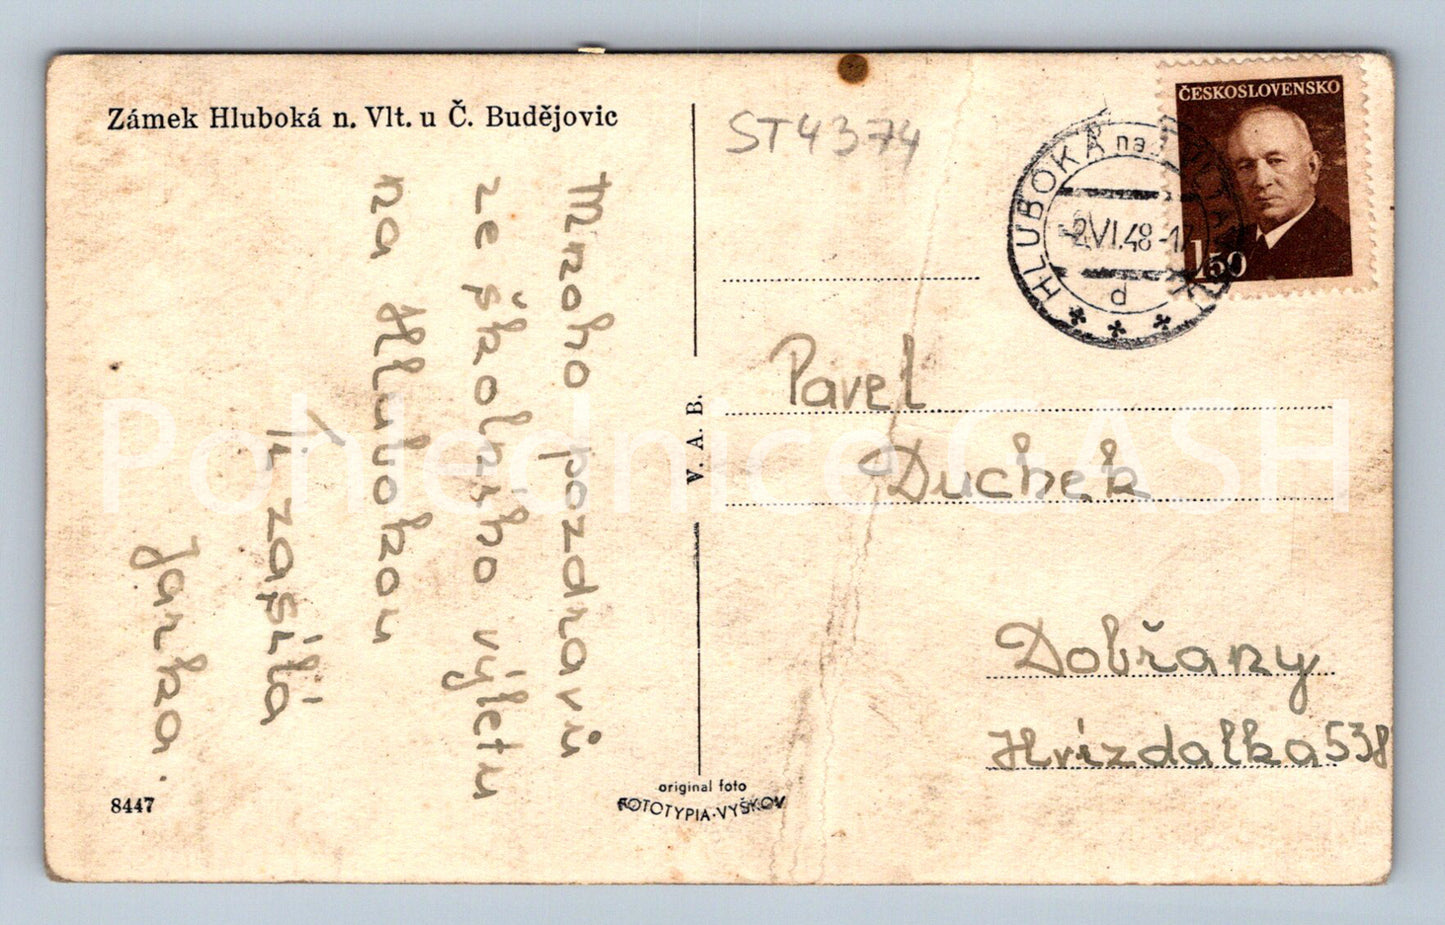 Zámek Hluboká n. Vlt. u Č. Budějovic
Mnoho pozdravů
ze školního výletu
na Hlubokou
Ti zasílá
Jarka.
8447
V. A. B.
original foto
FOTOTYPIA-VYŠKOV
ST4374
ČESKOSLOVENSKO
1,50
HLUBOKÁ na
2.VI.48-1
d
Pavel
Duchek
Dobřany
Hvízdalka 538
Pohlednice GASH